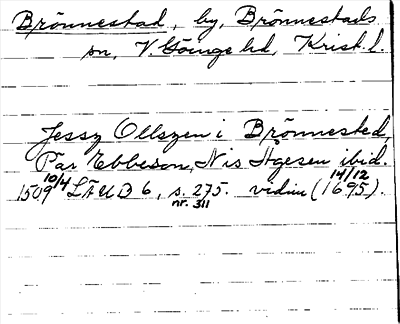 Brönnestad, by, Brönnestads
sn, V. Göinge hd, Krist. l.
Jessz Ollszen i Brönnested,
Par Ebbeson, Nis Ågesen ibid.
1509 10/4 LÄUB 6, s. 275. vidim (14/12 1695).
nr. 311